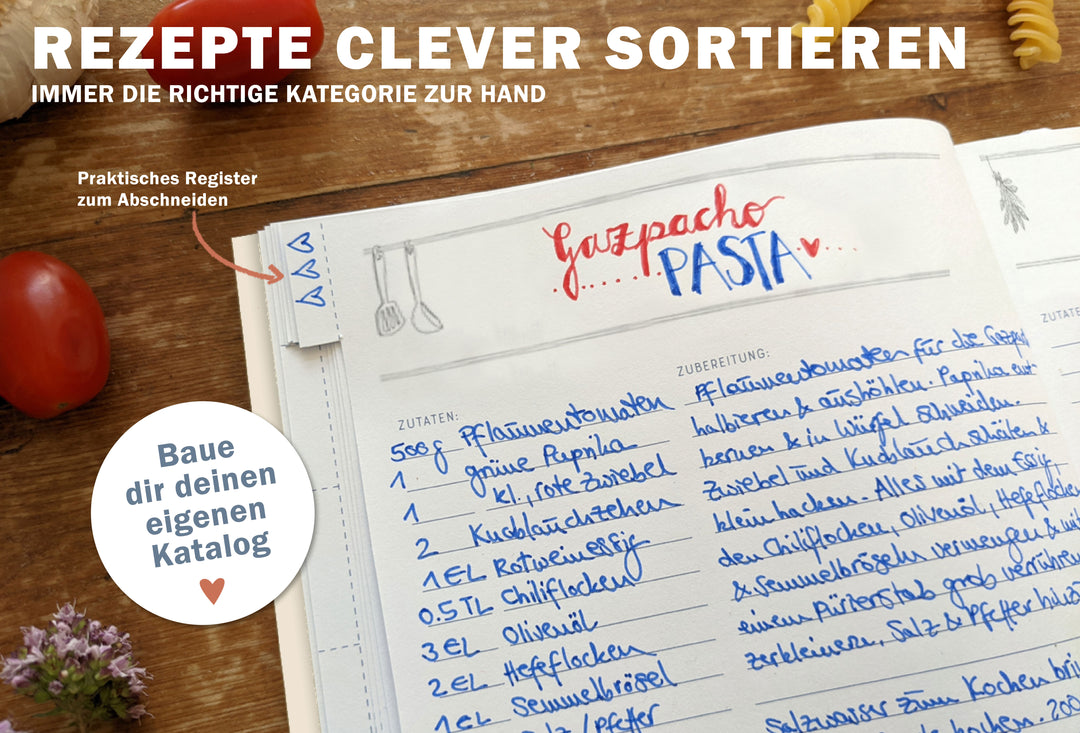 REZEPTE CLEVER SORTIEREN
IMMER DIE RICHTIGE KATEGORIE ZUR HAND
Praktisches Register
zum Abschneiden
Baue
dir deinen
eigenen
Katalog
Gazpacho
PASTA
ZUTATEN:
500g Pflaumentomaten
1 grüne Paprika
1 kl., rote Zwiebel
2 Knoblauchzehen
1 EL Rotweinessig
0.5 TL Chiliflocken
3 EL Olivenöl
2 EL Hefeflocken
1 EL Semmelbrösel
Salz / Pfeffer
ZUBEREITUNG:
Pflaumentomaten für die
halbieren & aushöhlen. Paprika ent
kernen & in Würfel schneiden.
Zwiebel und Knoblauch schälen &
klein hacken. Alles mit dem Essig,
den Chiliflocken, Olivenöl, Hefeflocken
& Semmelbröseln vermengen & mit
einem Pürierstab grob verrühren
zerkleinern, Salz & Pfeffer
Salzwasser zum Kochen
kochen. 200